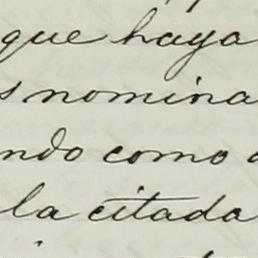 que haya
s nomina
ndo como
la citada